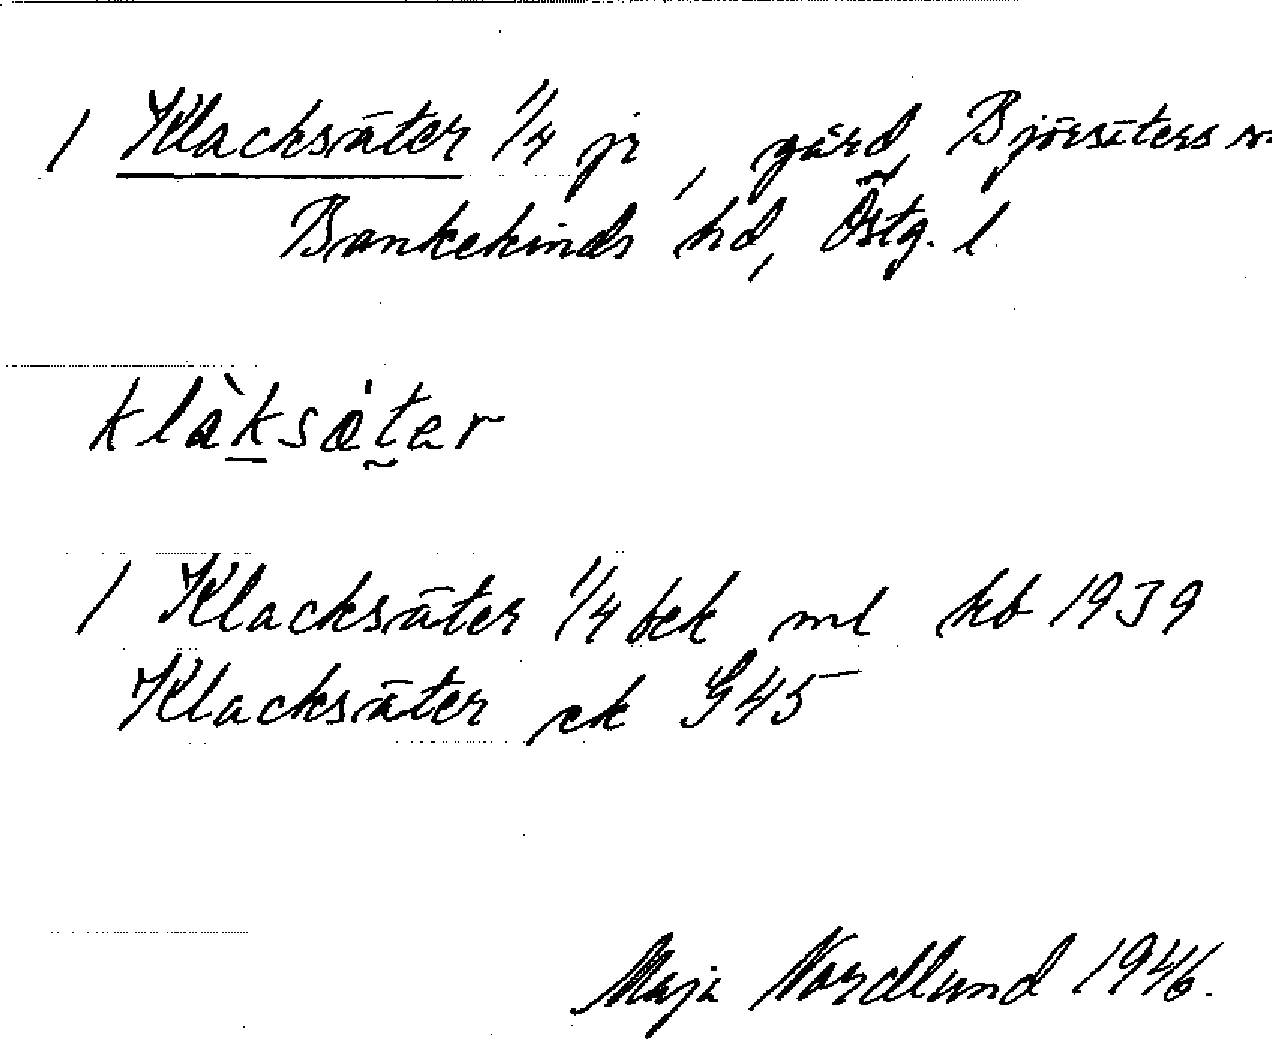 1 Klacksäter 1/4 jr, gård, Björsäters
Bankekinds hd, Östg. l
klàksætar
1 Klacksäter 1/4 bek ml kb 1939
Klacksäter ek G45
Maja Nordlund 1946.